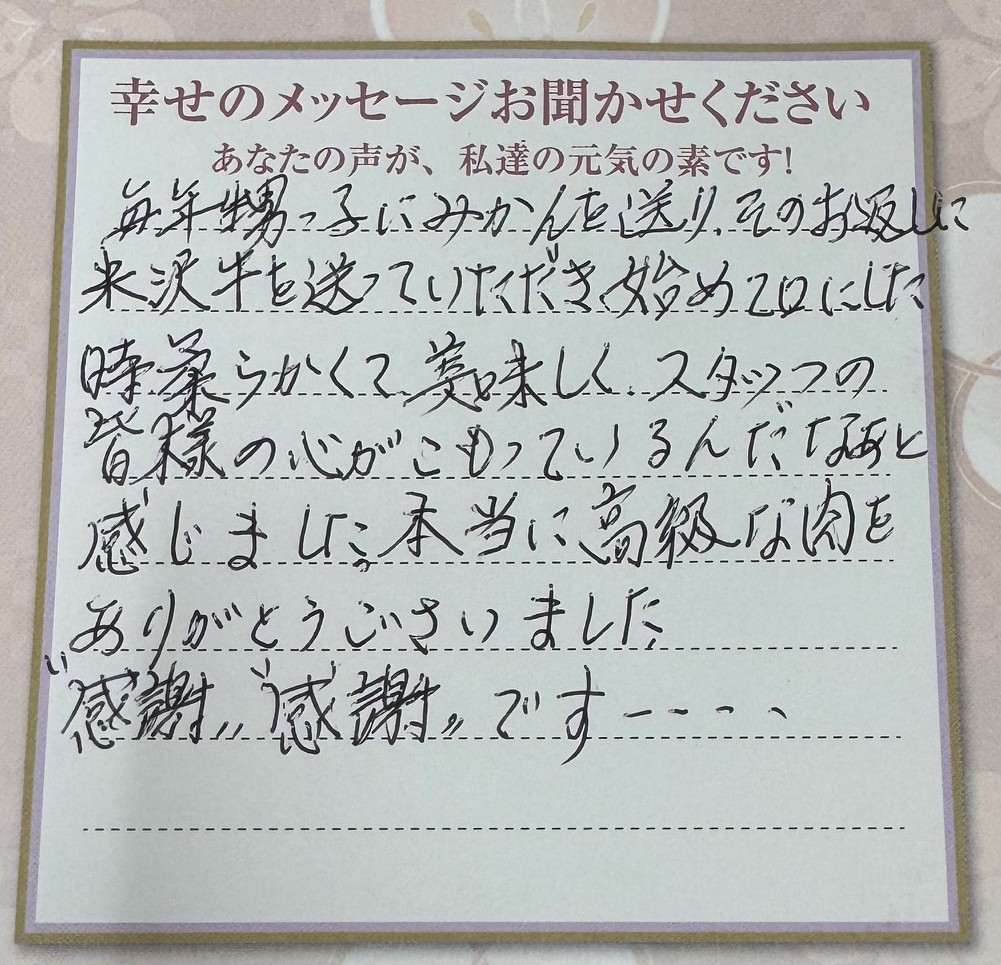 幸せのメッセージお聞かせください
あなたの声が、私達の元気の素です!
毎年甥っ子にみかんを送り、そのお返しに
米沢牛を送っていただき、始めて口にした
時柔らかくて、美味しく、スタッフの
皆様の心がこもっているんだなあと
感じました。本当に高級な肉を
ありがとうございました
"感謝〃"感謝〃です----